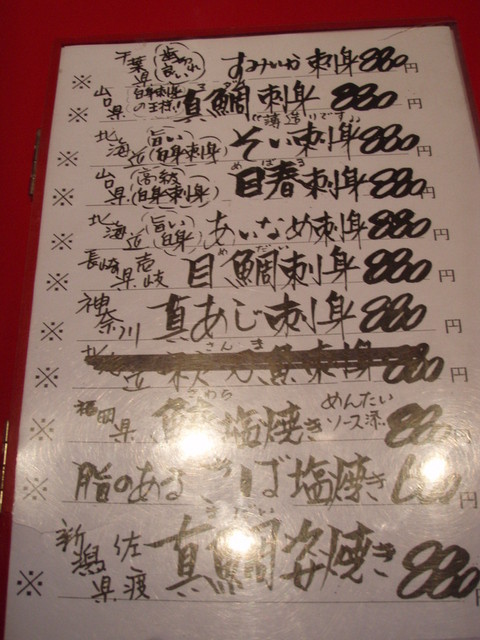 ※ 千葉県 歯切れ良い すみいか刺身 880円
※ 山口県 白身刺身の王様! 真鯛刺身 880円
※ 北海道 旨い白身刺身 そい刺身 "薄造りです" 880円
※ 山口県 高級白身刺身 目春刺身 めばる 880円
※ 北海道 旨い白身 あいなめ刺身 880円
※ 長崎県壱岐 目鯛刺身 めだい 880円
※ 神奈川 真あじ刺身 880円
※ 北海道 さんま 刺身 880円
※ 福岡県 さわら 鰆塩焼き めんたいソース添 880円
※ 脂のある さば塩焼き 円
※ 新潟県佐渡 真鯛姿焼き 880円